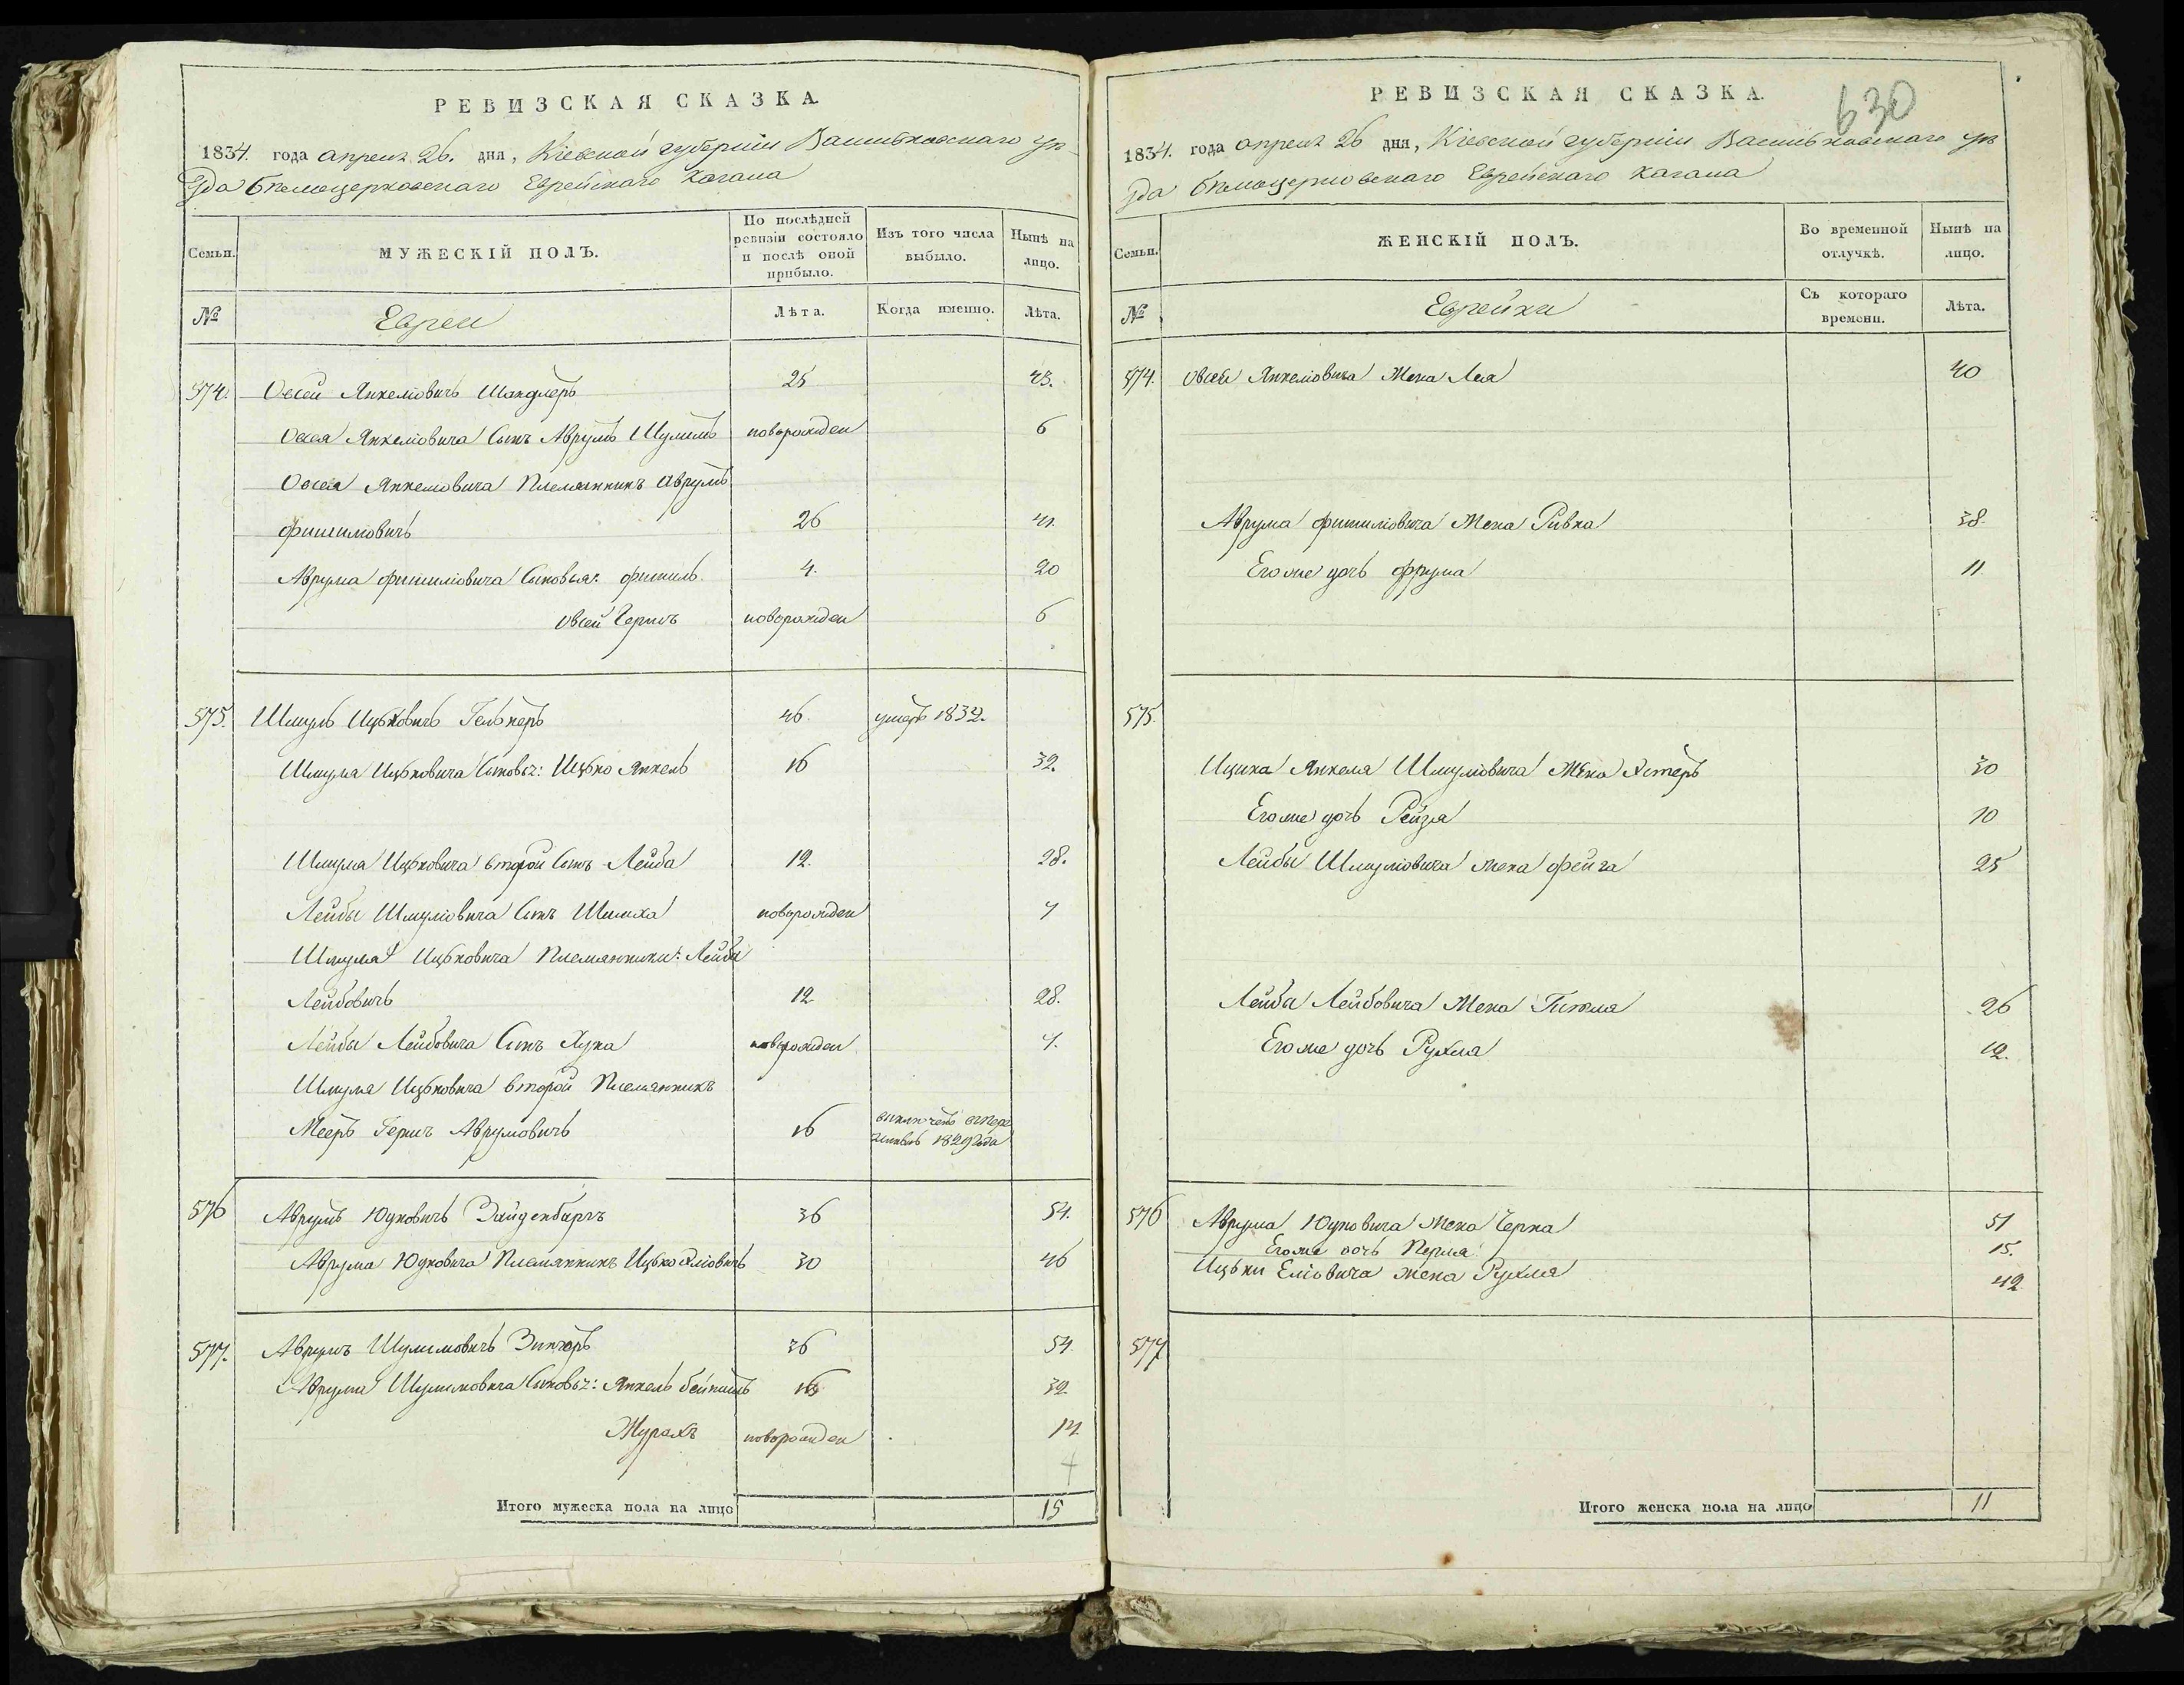 РЕВИЗСКАЯ СКАЗКА.
1834. года апреля 26. дня, Кіевской губерніи Васильковскаго уѣ-
зда бѣлоцерковскаго Еврейскаго Кагала
Семьи.
МУЖЕСКІЙ ПОЛЪ.
По послѣдней ревизіи состояло и послѣ оной прибыло.
Изъ того числа выбыло.
Нынѣ на лицо.
№
Евреи
Лѣта.
Когда именно.
Лѣта.
574. Овсей Янкеліовичъ 25 43.
Овсея Янкеліовича Сынъ Аврумъ Шулимъ новорожден 6
Овсея Янкеліовича Племянникъ Аврумъ
Фишиліовичъ 26 41.
Аврума Фишиліовича Сыновья: Фишиль 4. 20
Овсей Гершъ новорожден 6
575. Шмуль Ицьковичъ 46. умеръ 1832.
Шмуля Ицьковича Сыновья: Ицько Янкель 16 32.
Шмуля Ицьковича второй Сынъ Лейба 12. 28.
Лейбы Шмуліовича Сынъ Шимха новорожден 7
Шмуля Ицьковича Племянники: Лейба
Лейбовичъ 12 28.
Лейбы Лейбовича Сынъ новорожден 7.
Шмуля Ицьковича второй Племянникъ
Мееръ Гершъ Аврумовичъ 16 1829 года
576 Аврумъ Юдковичъ Зайденбаргъ 36 54.
Аврума Юдковича Племянникъ Ицько Эліовичъ 30 46
577. Аврумъ Шулимовичъ 36 54
Аврума Шулимовича Сыновья: Янкель Бейнишъ 16 32
новорожден 14
Итого мужеска пола на лицо 15
РЕВИЗСКАЯ СКАЗКА.
630
1834. года апреля 26 дня, Кіевской губерніи Васильковскаго уѣ
зда бѣлоцерковскаго Еврейскаго Кагала
Семьи.
ЖЕНСКІЙ ПОЛЪ.
Во временной отлучкѣ.
Нынѣ на лицо.
№
Еврейки
Съ котораго времени.
Лѣта.
574. Овсея Янкеліовича Жена Лея 40
Аврума Фишиліовича Жена Ривка 38.
Его же дочь Фрума 11
575.
Ицька Янкеля Шмуліовича Жена Эстеръ 30
Его же дочь Рейзя 10
Лейбы Шмуліовича жена Фейга 25
Лейбы Лейбовича Жена Гитля 26
Его же дочь Рухля 12.
576 Аврума Юдковича Жена Черна 51
Его же дочь Перля 15.
Ицьки Еліовича жена Рухля 42
577
Итого женска пола на лицо 11